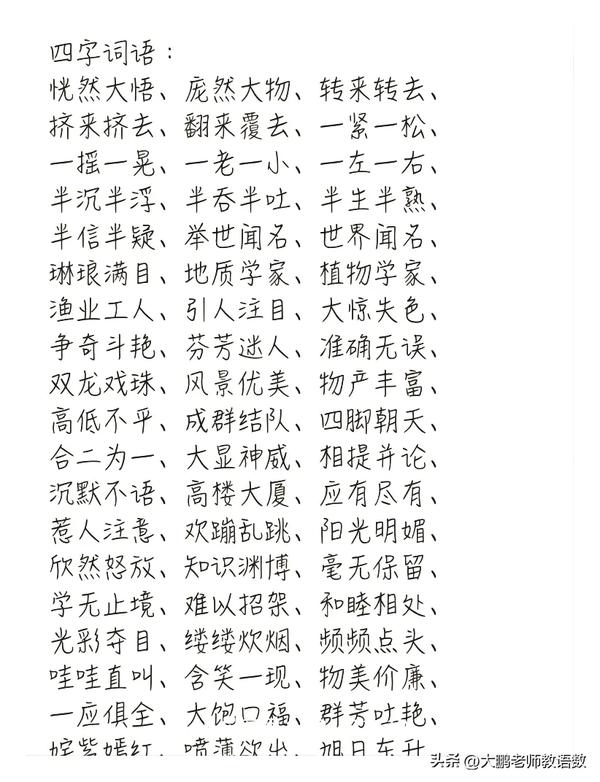 四字词语：
恍然大悟、庞然大物、转来转去、
挤来挤去、翻来覆去、一紧一松、
一摇一晃、一老一小、一左一右、
半沉半浮、半吞半吐、半生半熟、
半信半疑、举世闻名、世界闻名、
琳琅满目、地质学家、植物学家、
渔业工人、引人注目、大惊失色、
争奇斗艳、芬芳迷人、准确无误、
双龙戏珠、风景优美、物产丰富、
高低不平、成群结队、四脚朝天、
合二为一、大显神威、相提并论、
沉默不语、高楼大厦、应有尽有、
惹人注意、欢蹦乱跳、阳光明媚、
欣然怒放、知识渊博、毫无保留、
学无止境、难以招架、和睦相处、
光彩夺目、缕缕炊烟、频频点头、
哇哇直叫、含笑一现、物美价廉、
一应俱全、大饱口福、群芳吐艳、
姹紫嫣红、喷薄欲出、旭日东升
头条 @大鹏老师教语数